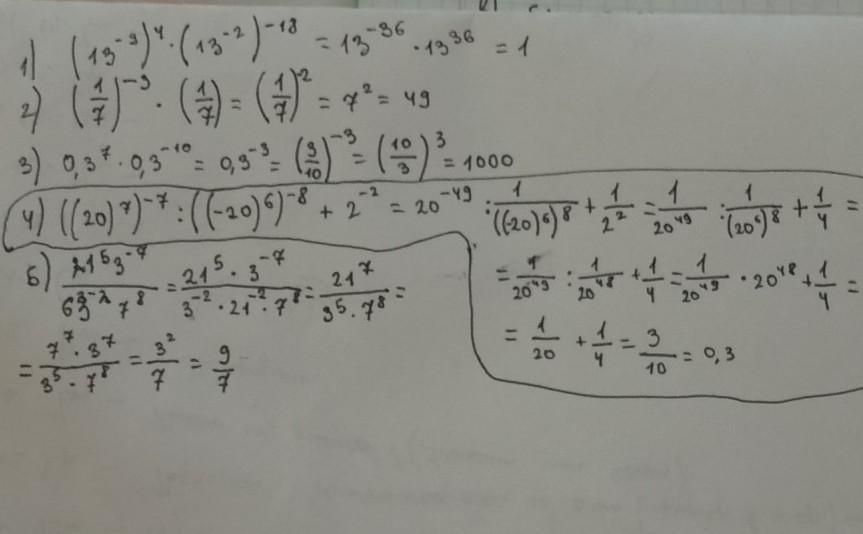 1) (13⁻⁹)⁴ · (13⁻²)⁻¹⁸ = 13⁻³⁶ · 13³⁶ = 1
2) (1/7)⁻³ · (1/7) = (1/7)⁻² = 7² = 49
3) 0,3⁷ · 0,3⁻¹⁰ = 0,3⁻³ = (3/10)⁻³ = (10/3)³ = 1000
4) ((20)⁷)⁻⁷ : ((-20)⁶)⁻⁸ + 2⁻² = 20⁻⁴⁹ : 1/((-20)⁶)⁸ + 1/2² = 1/20⁴⁹ : 1/(20⁶)⁸ + 1/4 =
= 1/20⁴⁹ : 1/20⁴⁸ + 1/4 = 1/20⁴⁹ · 20⁴⁸ + 1/4 =
= 1/20 + 1/4 = 3/10 = 0,3
5) 21⁵3⁻⁷/63⁻²7⁸ = 21⁵ · 3⁻⁷/3⁻² · 21⁻² · 7⁸ = 21⁷/3⁵ · 7⁸ =
= 7⁷ · 3⁷/3⁵ · 7⁸ = 3²/7 = 9/7